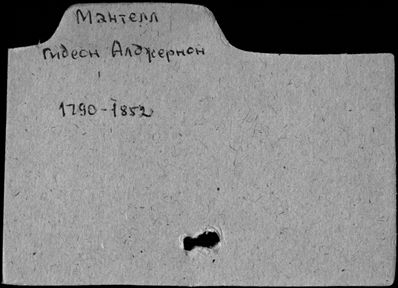 Мантелл
Гидеон Алджернон
1790-1852